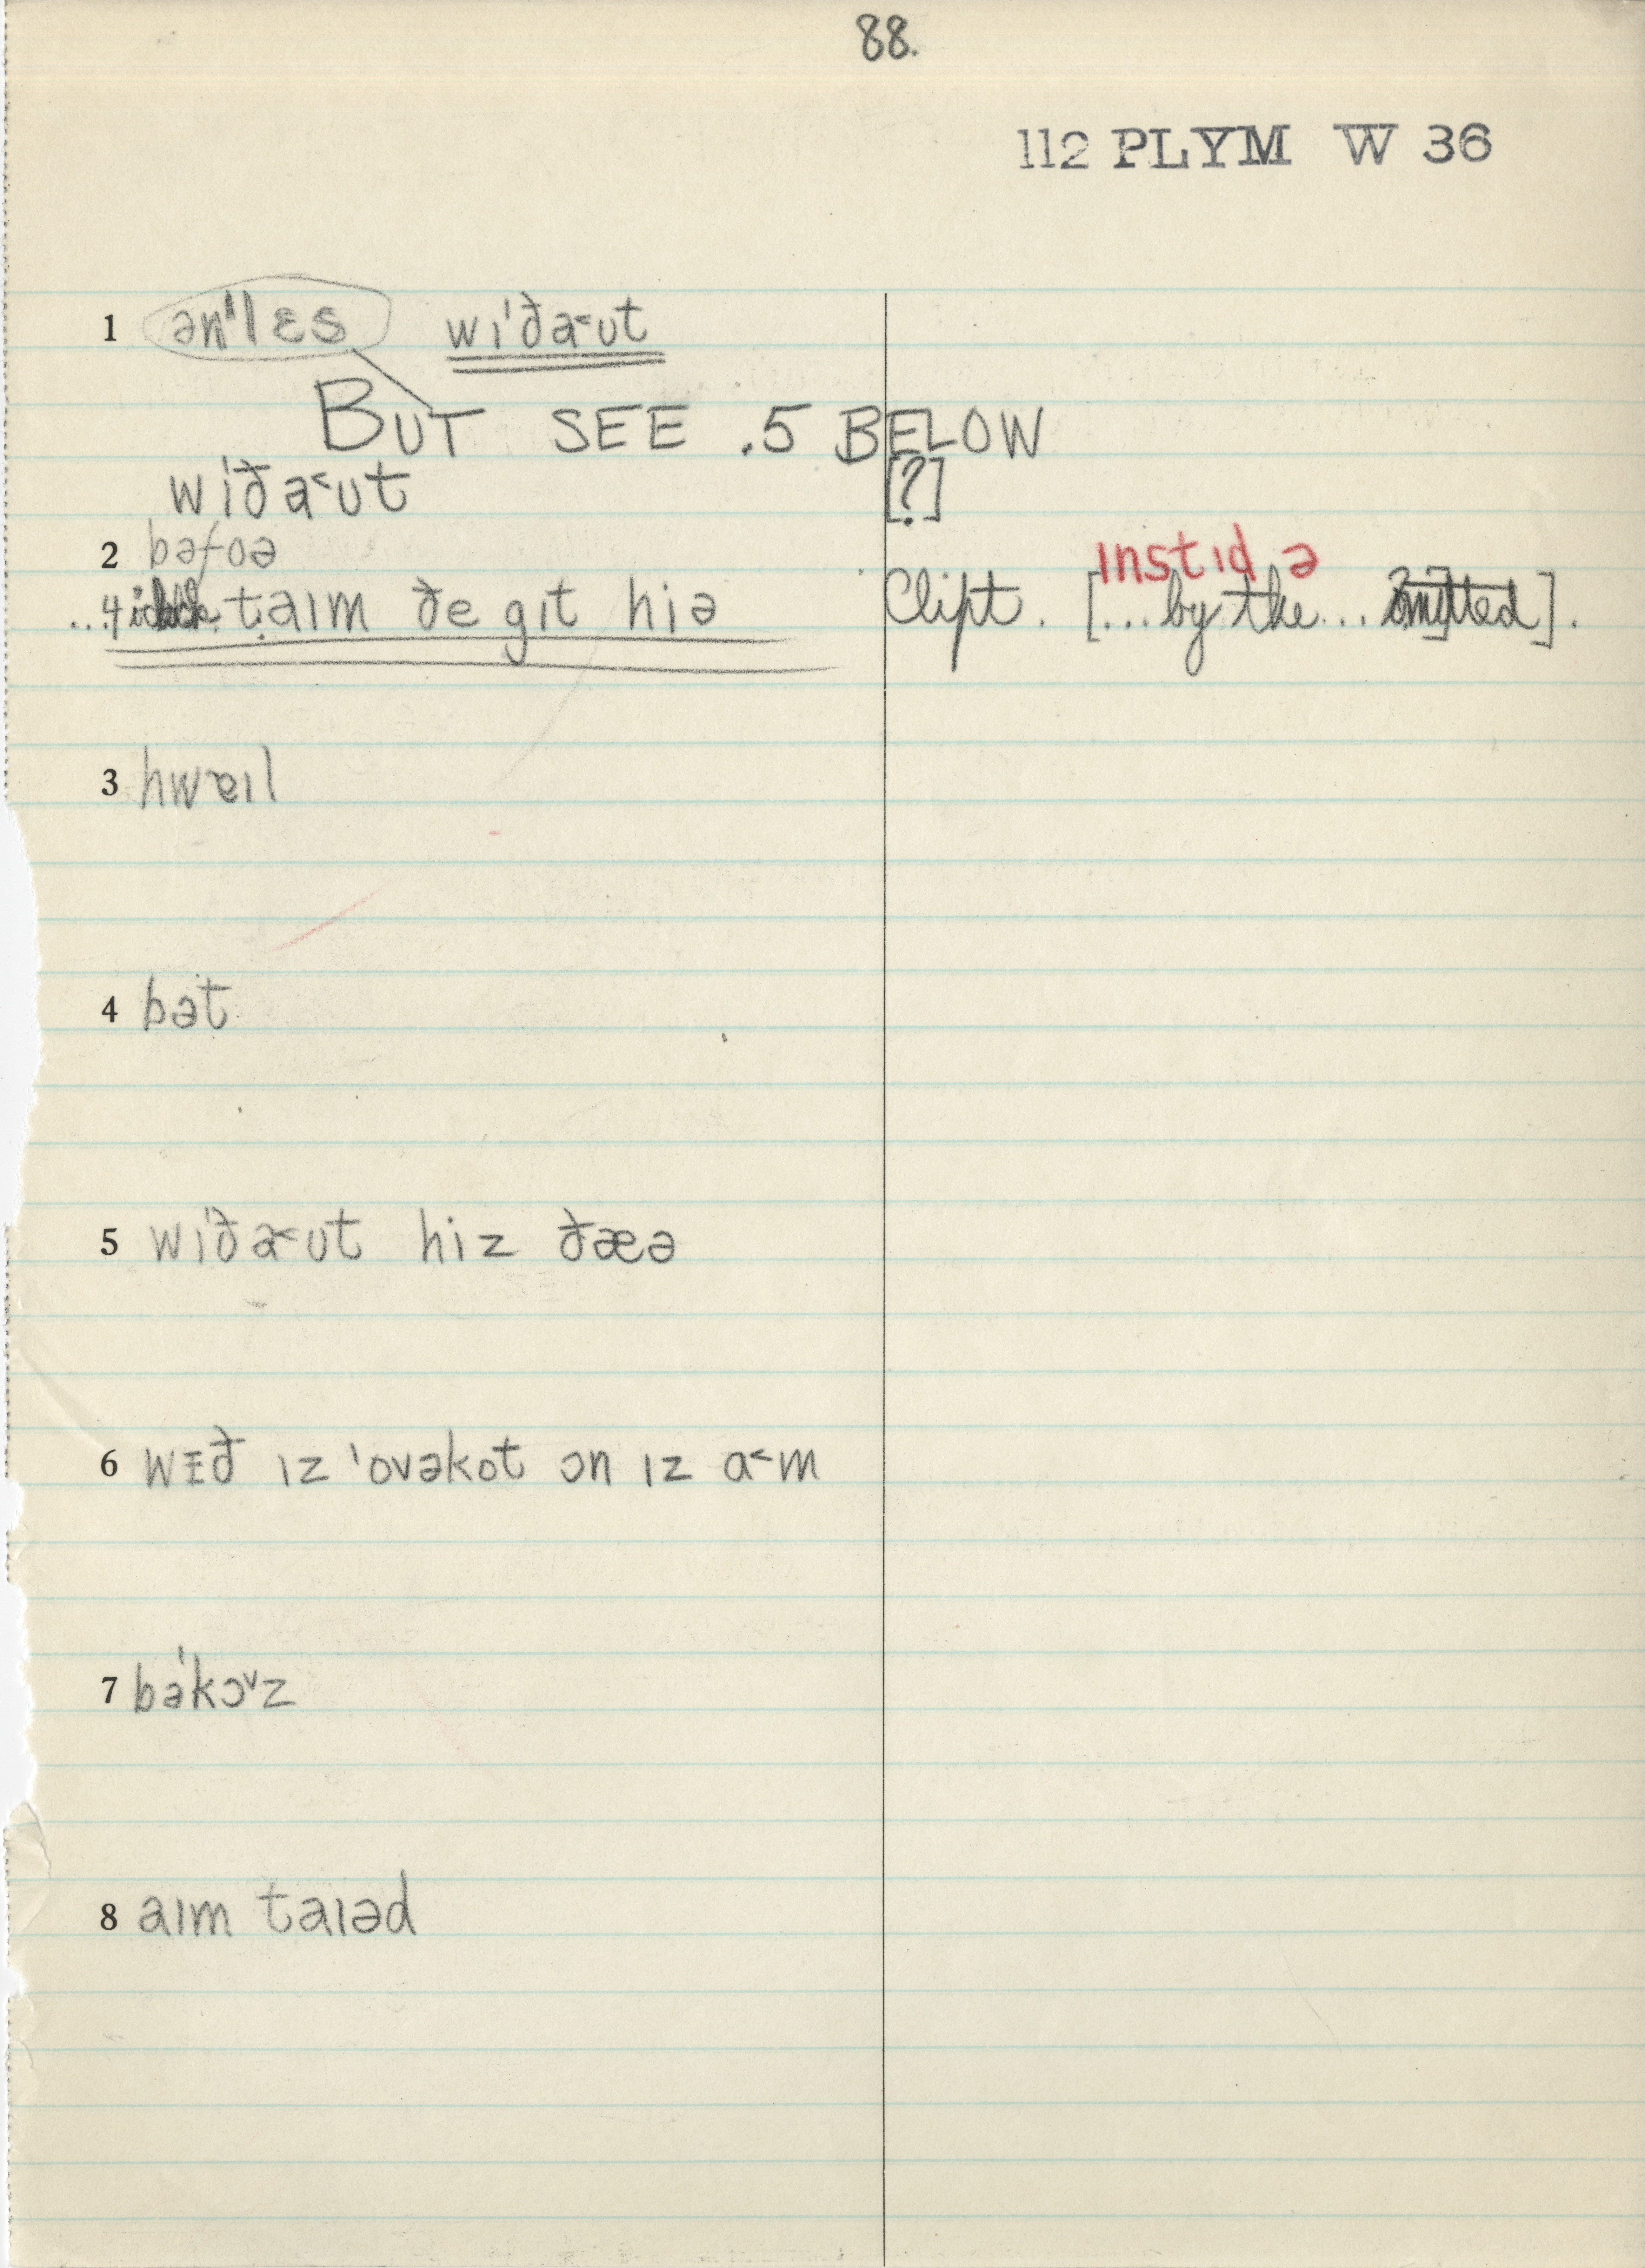 88.
112 PLYM W 36
1 ən'lɛs wɪ'ða˂ʊt
BUT SEE .5 BELOW
wɪ'ða˂ʊt [?]
2 bəfoə
ɪnstɪd ə
taɪm ðe gɪt hiə Clipt. [...by the...].
3 hwɐɪl
4 bət
5 wɪ'ða˂ʊt hiz ðæə
6 wɪð ɪz 'ovəkot ɔn ɪz a˂m
7 bə'kɔ˅z
8 aɪm taɪəd